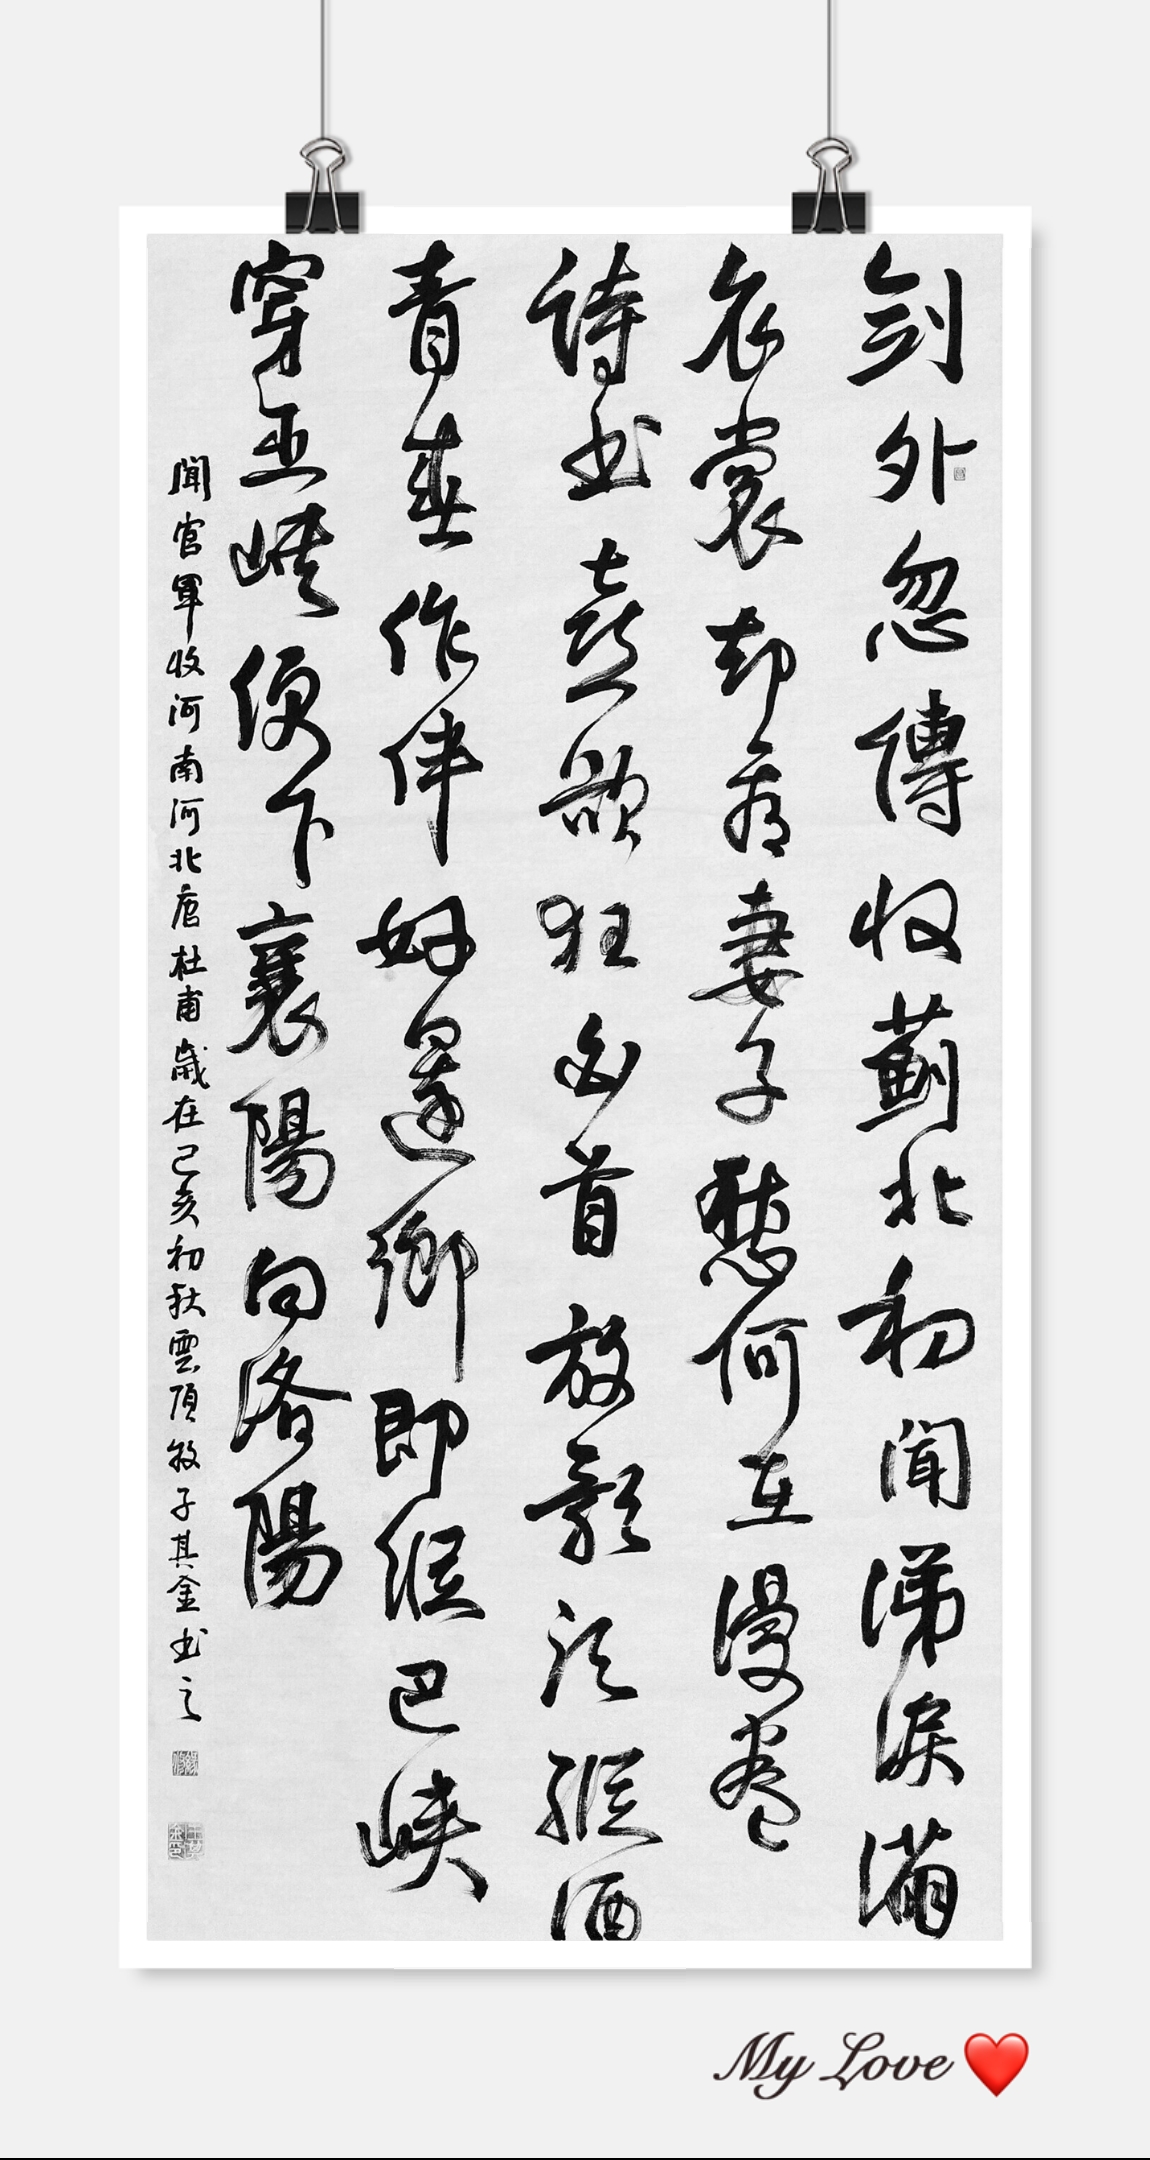 劍外忽傳收薊北初聞涕淚滿
衣裳却看妻子愁何在漫卷
詩书喜欲狂白首放歌須縱酒
青春作伴好還鄉即從巴峽
穿巫峽便下襄陽向洛陽
聞官軍收河南河北唐杜甫歲在己亥初秋雲頂牧子其金书之
My Love